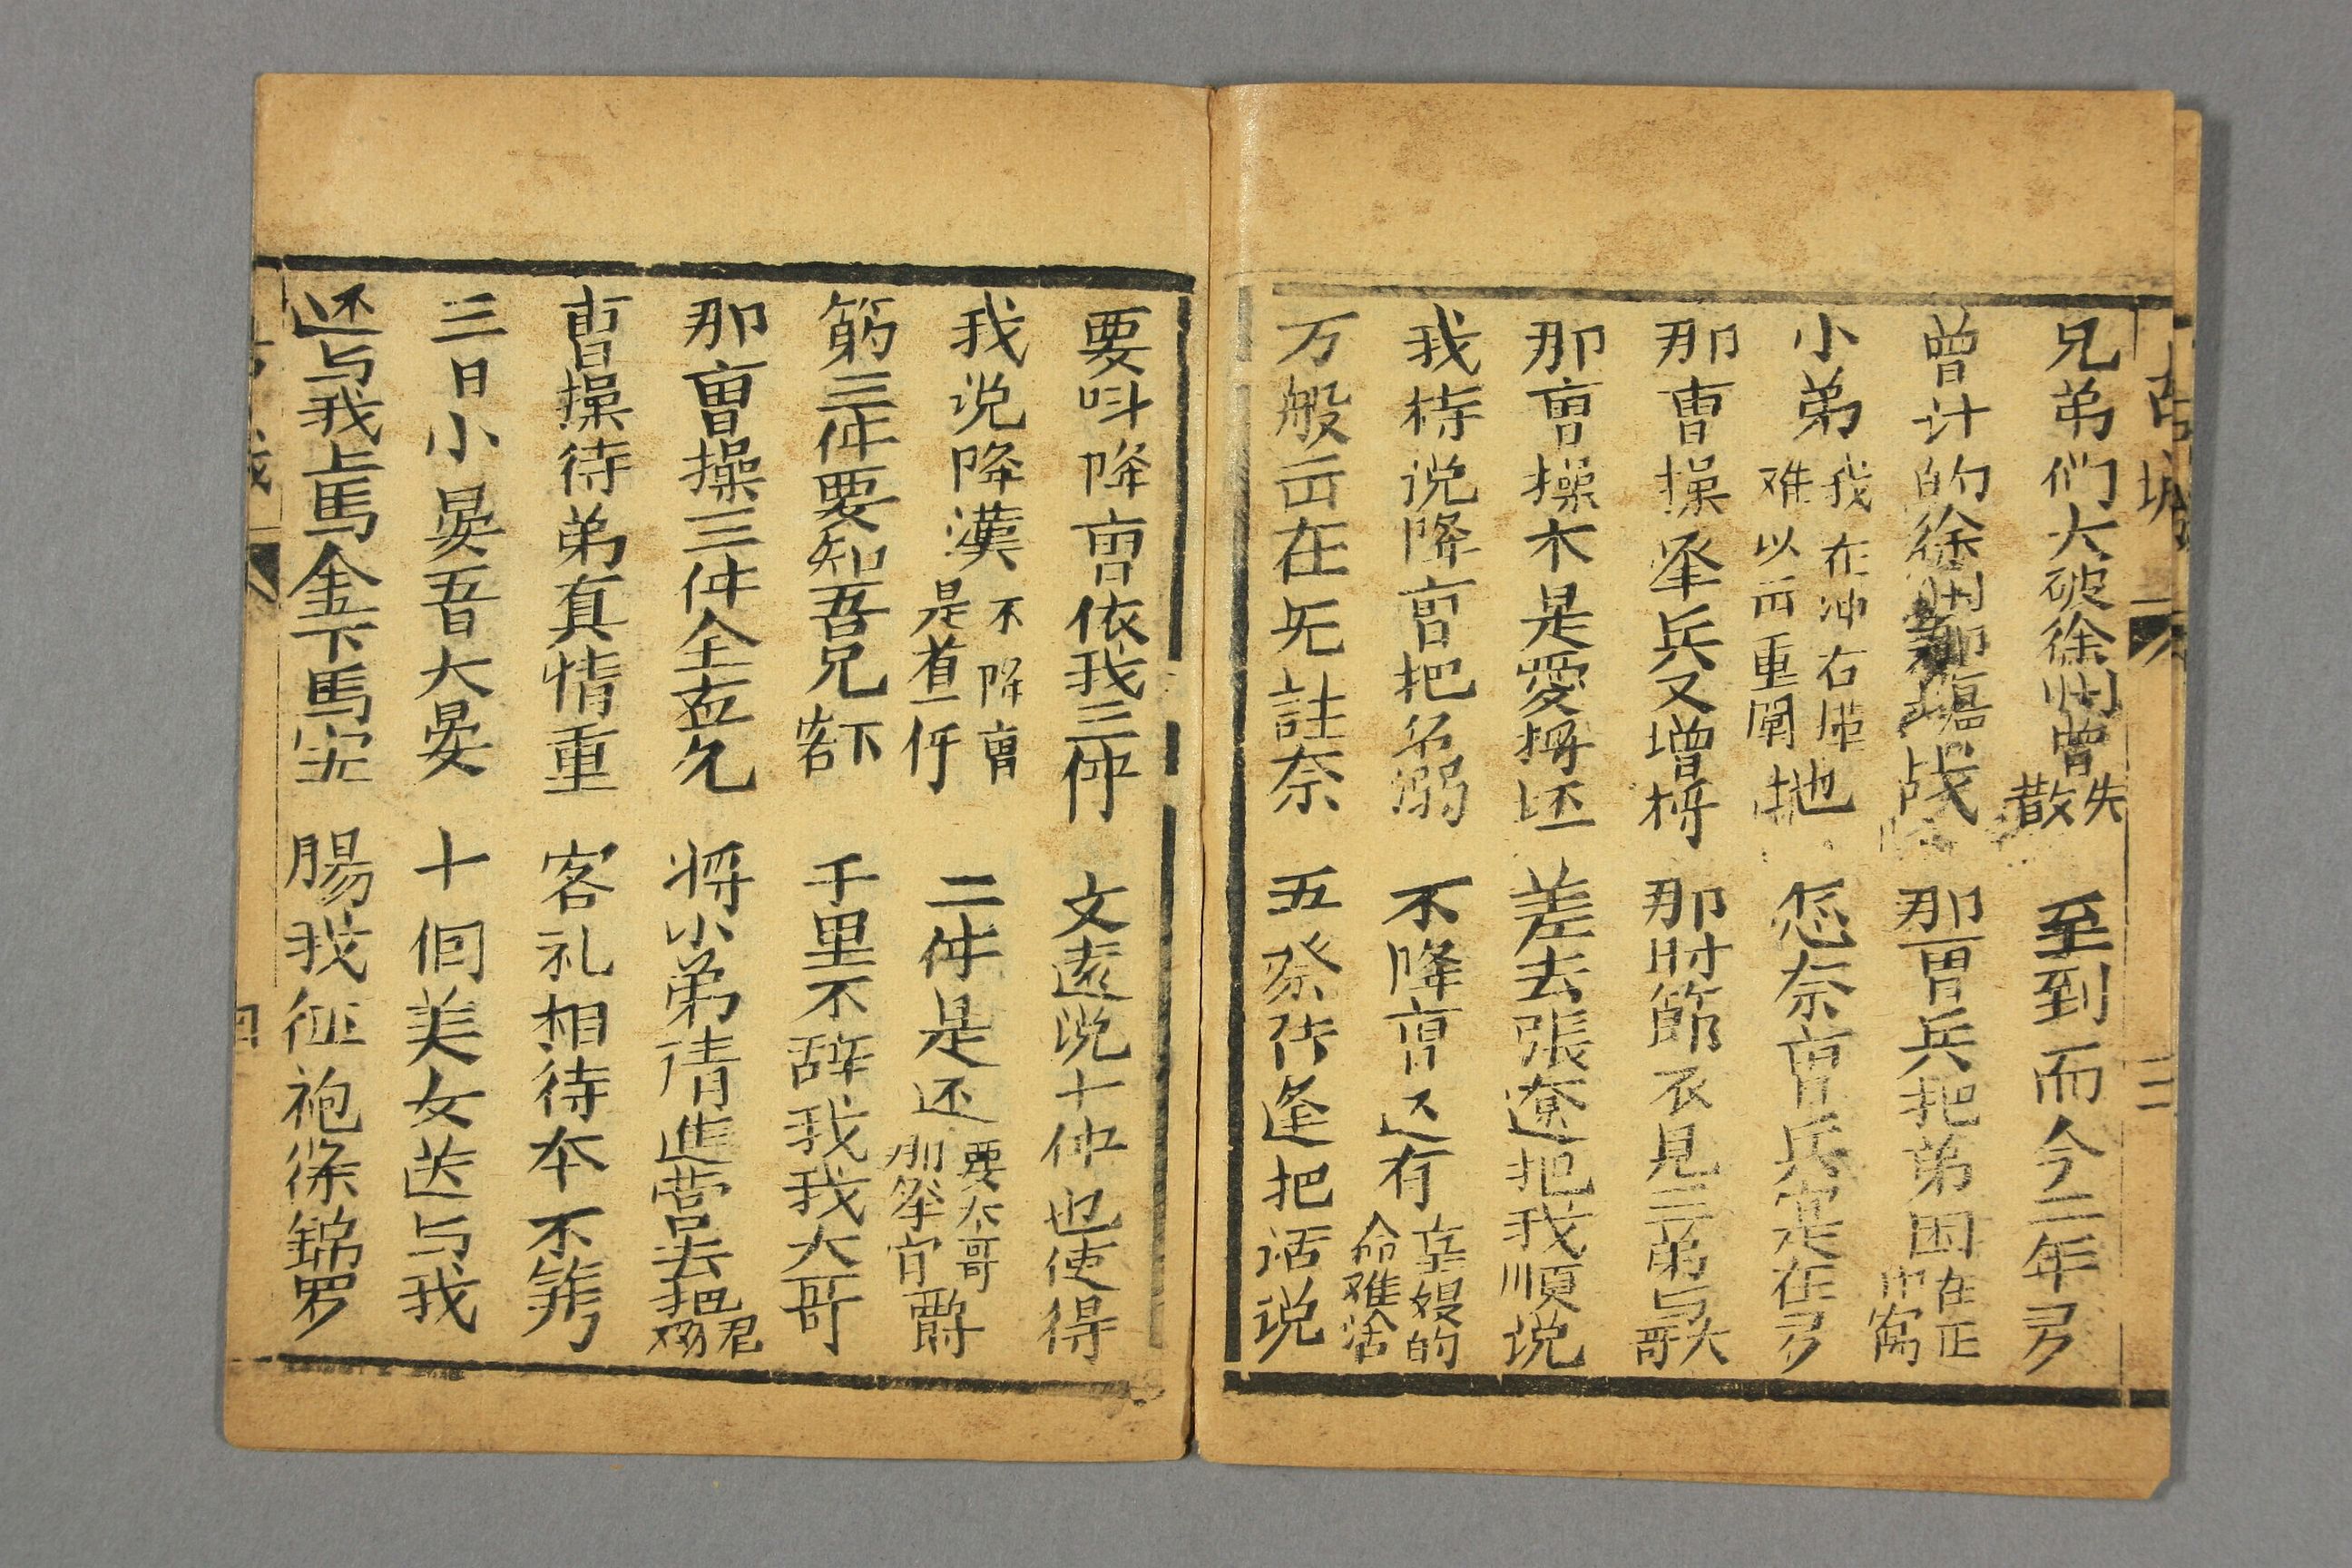 古城
二
兄弟们大破徐州曾失散 至到而今二年另
曾计的徐州那塲战 那曹兵把弟困在正中窩
小弟我在冲右撞难以出重闈地 怎奈曹兵寔在另
那曹操举兵又增将 那时節衣見三弟与大哥
那曹操本是愛将坯 差去張遼把我順说
我待说降曹把名溺 不降曹还有皇嫂的命难活
万般出在无註奈 五祭佐逢把话说
要叫降曹依我三件 文遠说十件也使得
我说降漢不降曹是首一件 二件是还要大哥那举官爵
第三件要知吾兄下客 千里不辞我我大哥
那曹操三件全應允 将小弟倩進营去把君嫂
曹操待弟真情重 客礼相待本不算
三日小晏吾大晏 十個美女送与我
还与我上馬金下馬宝 賜我征袍條錦罗
四